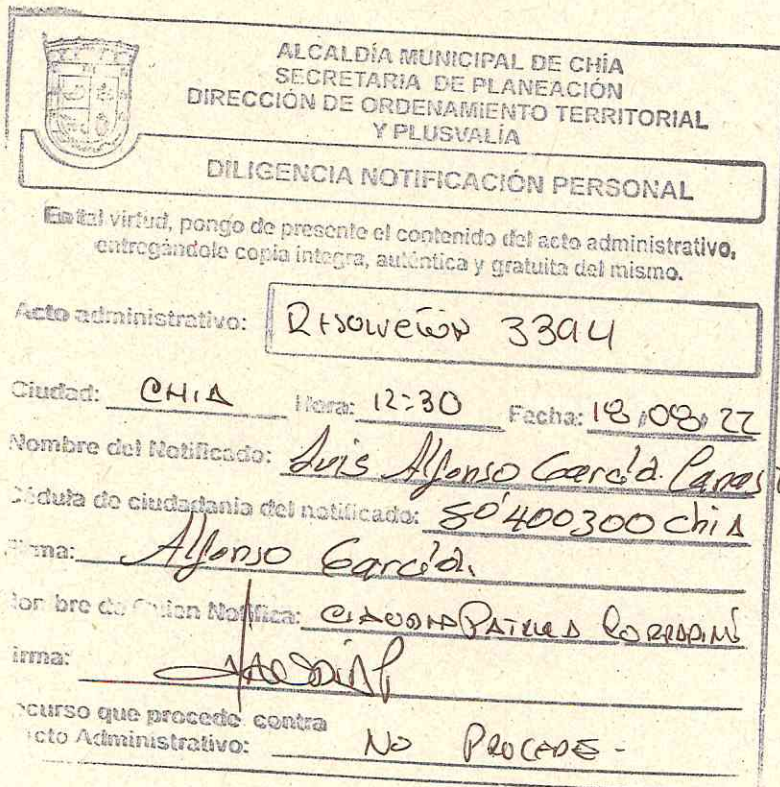 ALCALDÍA MUNICIPAL DE CHÍA
SECRETARIA DE PLANEACIÓN
DIRECCIÓN DE ORDENAMIENTO TERRITORIAL
Y PLUSVALÍA
DILIGENCIA NOTIFICACIÓN PERSONAL
En tal virtud, pongo de presente el contenido del acto administrativo,
entregándole copia integra, auténtica y gratuita del mismo.
Acto administrativo: Resolución 3394
Ciudad: CHIA Hora: 12:30 Fecha: 18/08/22
Nombre del Notificado: Luis Alfonso García
Cédula de ciudadanía del notificado: 80'400300 chiA
Firma: Alfonso García
Nombre de Quien Notifica: CLAUDIA PATRICIA
irma:
curso que procede contra
cto Administrativo: NO PROCEDE -